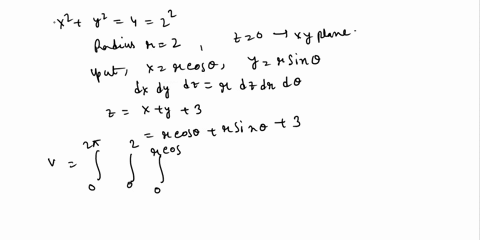 x² + y² = 4 = 2²
Radius r = 2 , z=0 → xy plane.
put, x = r cosθ , y = r sinθ
dx dy dz = r dz dr dθ
z = x + y + 3
= r cosθ + r sinθ + 3
v = ∫₀^{2π} ∫₀^{2} ∫₀^{r cos}